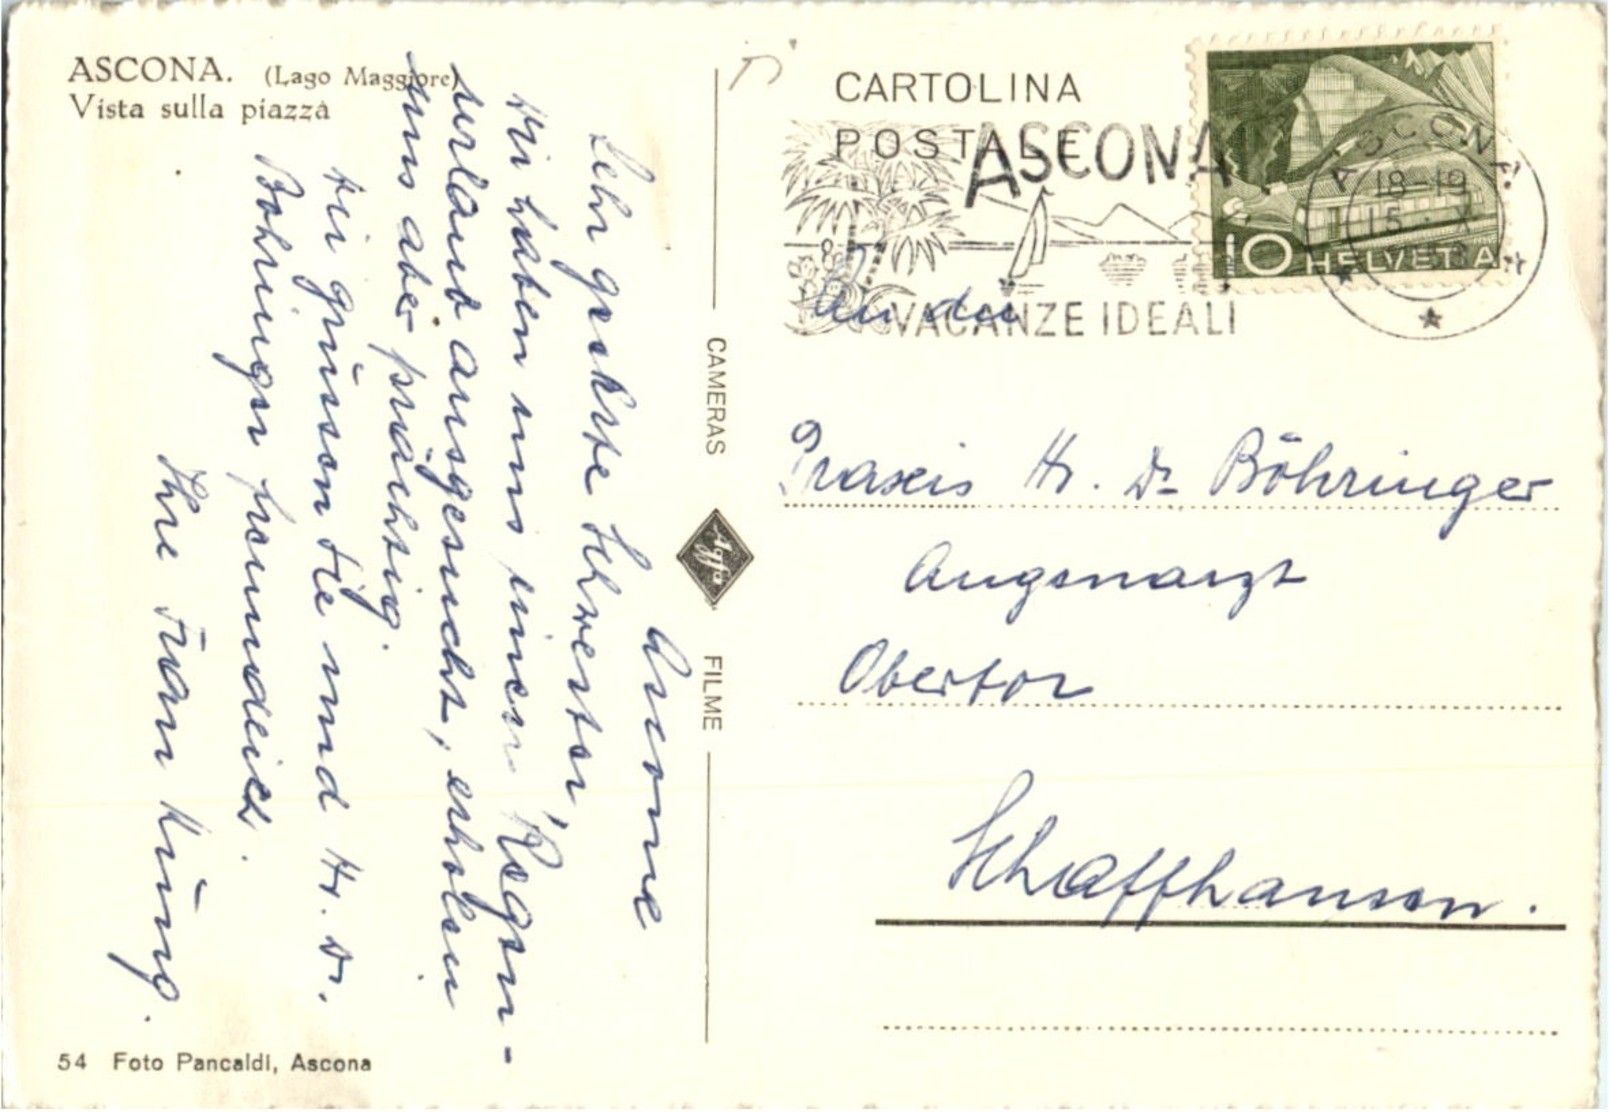 ASCONA. (Lago Maggiore)
Vista sulla piazza
Ascona
Sehr geehrte Schwester,
Wir haben uns einen Regen-
urlaub ausgesucht, erholen
uns aber prächtig.
Wir grüssen Sie und Hr. Dr.
Böhringer freundlich.
Ihre Frau Küng.
54 Foto Pancaldi, Ascona
CAMERAS
Agfa
FILME
CARTOLINA
POSTALE
ASCONA
VACANZE IDEALI
ASCONA
18-19
15. X
10 HELVETIA
An die
Praxis Hr. Dr. Böhringer
Augenarzt
Obertor
Schaffhausen.